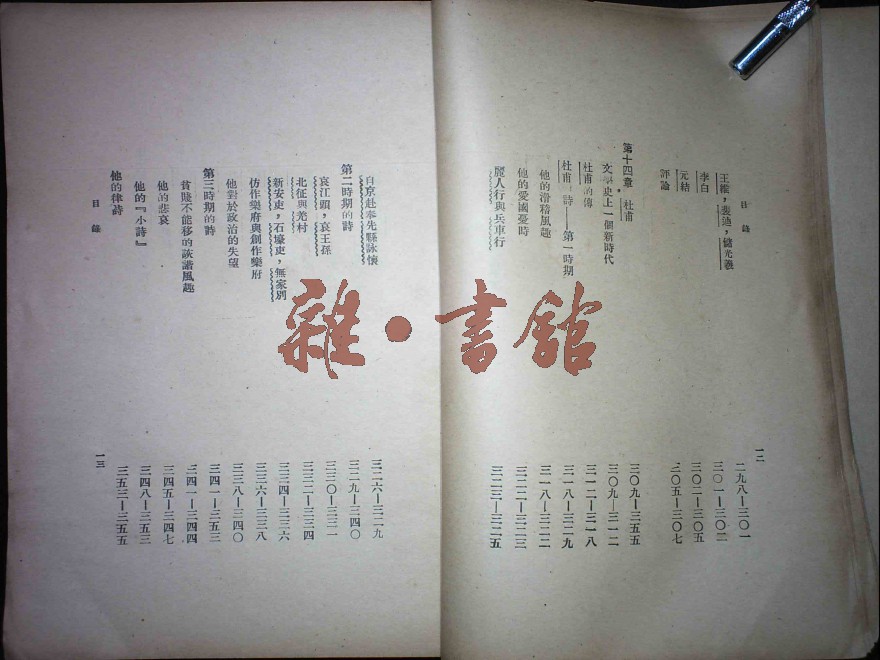 目錄
一二
王維，裴迪，儲光羲 二九八—三〇一
李白 三〇一—三〇二
元結 三〇二—三〇五
評論 三〇五—三〇七
第十四章 杜甫 三〇九—三五五
文學史上一個新時代 三〇九—三一二
杜甫的傳 三一二—三一八
杜甫的詩——第一時期 三一八—三二九
他的滑稽風趣 三一八—三二二
他的愛國憂時 三二二—三二三
麗人行與兵車行 三二三—三二五
自京赴奉先縣詠懷 三二六—三二九
第二時期的詩 三二九—三四〇
哀江頭，哀王孫 三三〇—三三一
北征與羌村 三三二—三三四
新安吏，石壕吏，無家別 三三四—三三六
仿作樂府與創作樂府 三三六—三三八
他對於政治的失望 三三八—三四〇
第三時期的詩 三四一—三五三
貧賤不能移的詼諧風趣 三四一—三四四
他的悲哀 三四五—三四七
他的『小詩』 三四八—三五三
他的律詩 三五三—三五五
目錄
一三
雜·書館